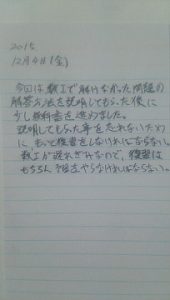 2015
12月4日(金)
今回は数Ⅰで解けなかった問題の
解答方法を説明してもらった後に
少し教科書を進めました。
説明してもらった事を忘れないため
に、もっと復習をしなければならない。
数Ⅰが遅れぎみなので、復習は
もちろん予習をやらなければならない。